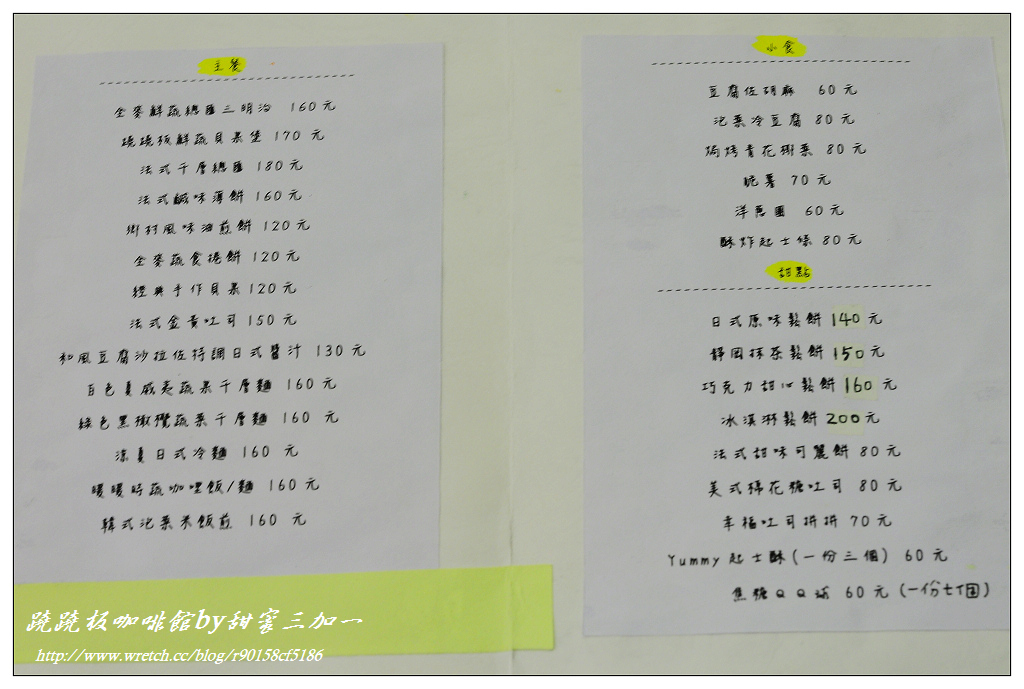 主餐
全麥鮮蔬總匯三明治 160元
蹺蹺板鮮蔬貝果堡 170元
法式千層總匯 180元
法式鹹味薄餅 160元
鄉村風味油煎餅 120元
全麥蔬食捲餅 120元
經典手作貝果 120元
法式金黃吐司 150元
和風豆腐沙拉佐特調日式醬汁 130元
白色夏威夷蔬果千層麵 160元
綠色黑橄欖蔬菜千層麵 160元
涼夏日式冷麵 160元
暖暖時蔬咖哩飯/麵 160元
韓式泡菜米飯煎 160元
小食
豆腐佐胡麻 60元
泡菜冷豆腐 80元
焗烤青花椰菜 80元
脆薯 70元
洋蔥圈 60元
酥炸起士條 80元
甜點
日式原味鬆餅 140元
靜岡抹茶鬆餅 150元
巧克力甜心鬆餅 160元
冰淇淋鬆餅 200元
法式甜味可麗餅 80元
美式棉花糖吐司 80元
幸福吐司拼拼 70元
Yummy起士酥(一份三個) 60元
焦糖QQ球 60元(一份七個)
蹺蹺板咖啡館by甜蜜三加一
http://www.wretch.cc/blog/r90158cf5186